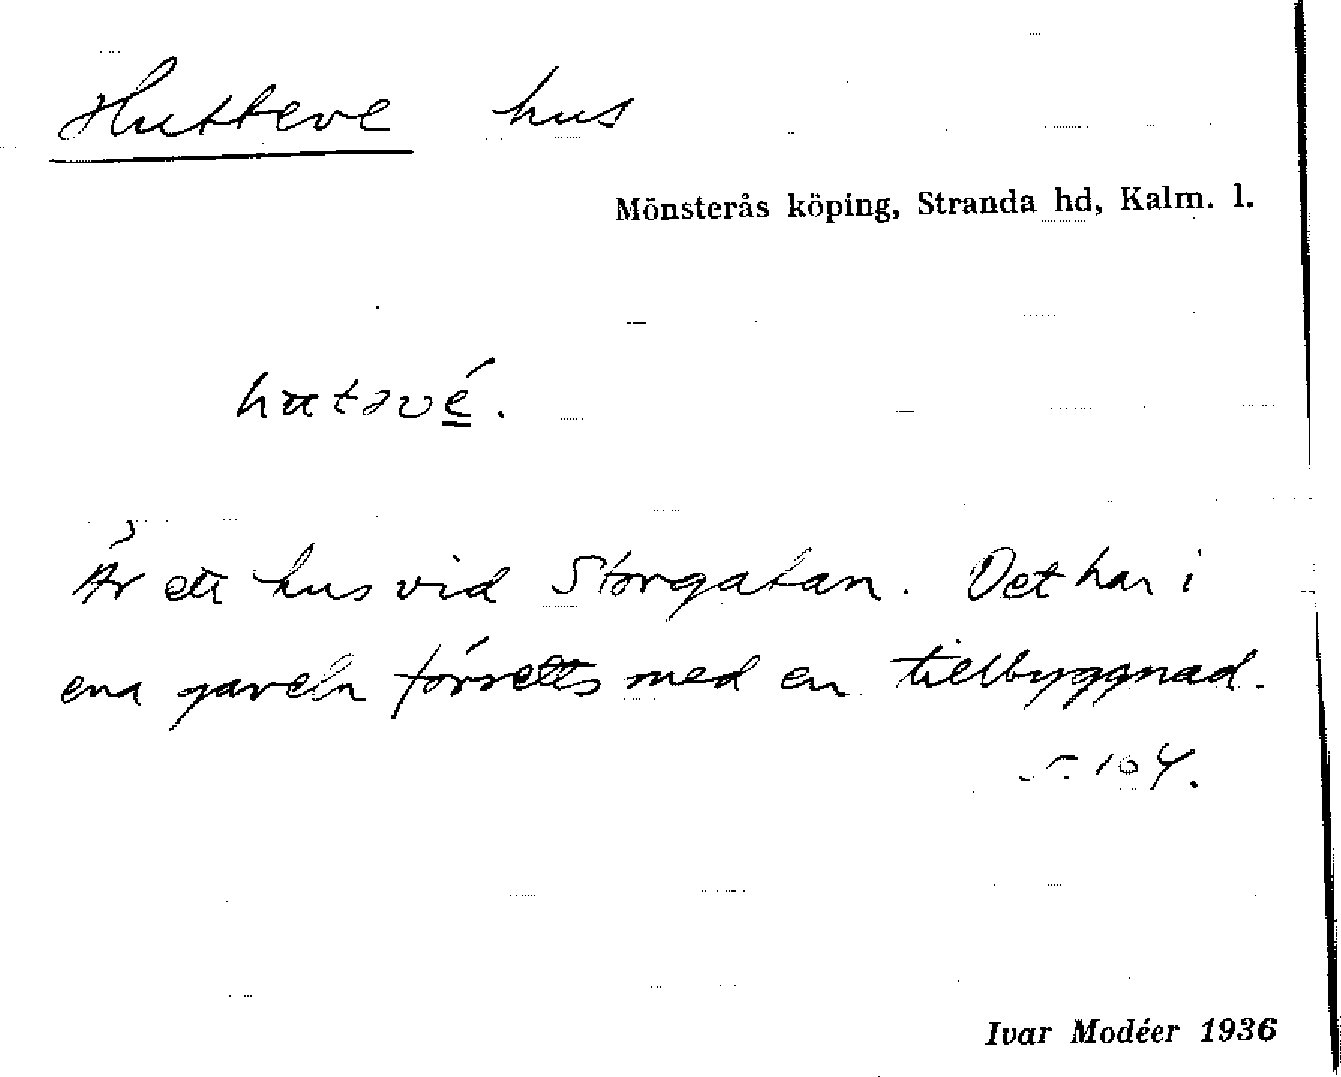 Hutteve hus
Mönsterås köping, Stranda hd, Kalm. l.
hutəvé.
Är ett hus vid Storgatan. Det har i
ena gaveln försetts med en tillbyggnad.
s. 104.
Ivar Modéer 1936